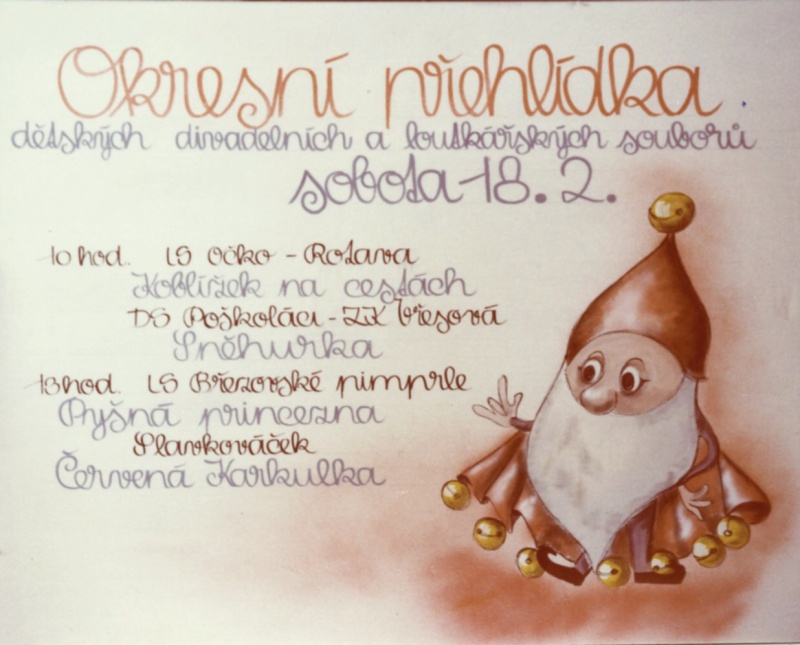 Okresní přehlídka
dětských divadelních a loutkářských souborů
sobota 18. 2.
10 hod. LS Očko - Rotava
Koblížek na cestách
DS Poškoláci - ZK Vřesová
Sněhurka
13 hod. LS Březovské pimprle
Pyšná princezna
Slavkováček
Červená Karkulka